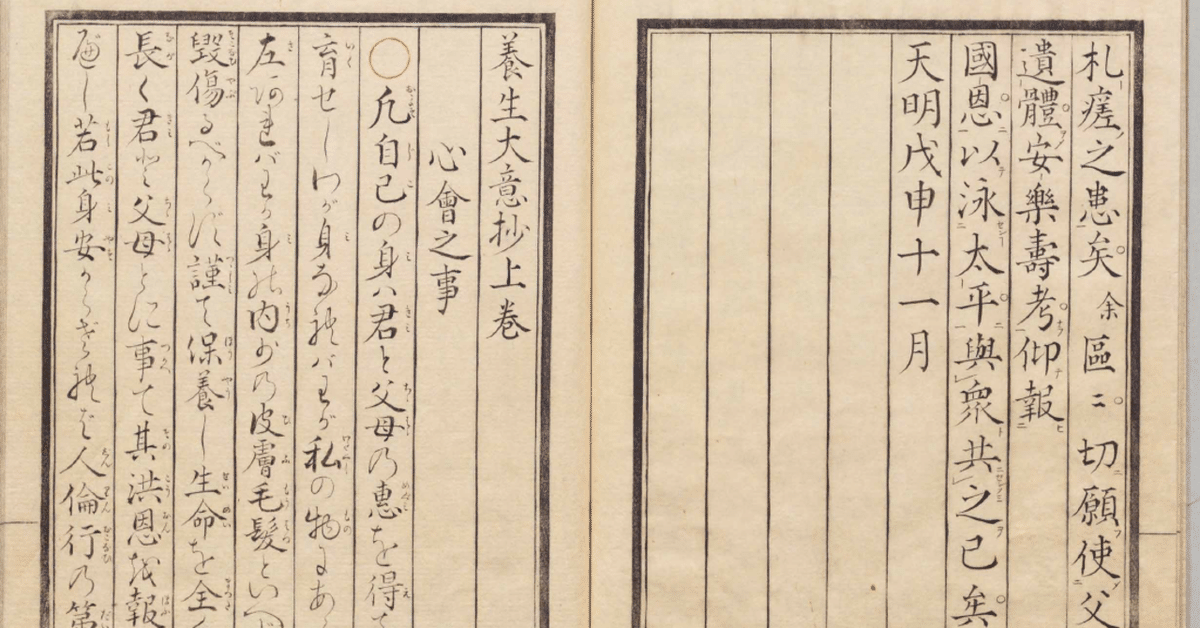 札瘥之患矣余區〻切願使父
遺體安樂壽考仰報
國恩以泳太平與衆共之已矣
天明戊申十一月
養生大意抄上巻
心會之事
○凡自己の身ハ君と父母の惠を得て
育せしわが身なれバわが私の物にあら
左あれバわが身の内少の皮膚毛髪といへ
毀傷るべからず謹て保養し生命を全く
長く君と父母とに事て其洪恩を報
べし若此身安からざれば人倫行の第